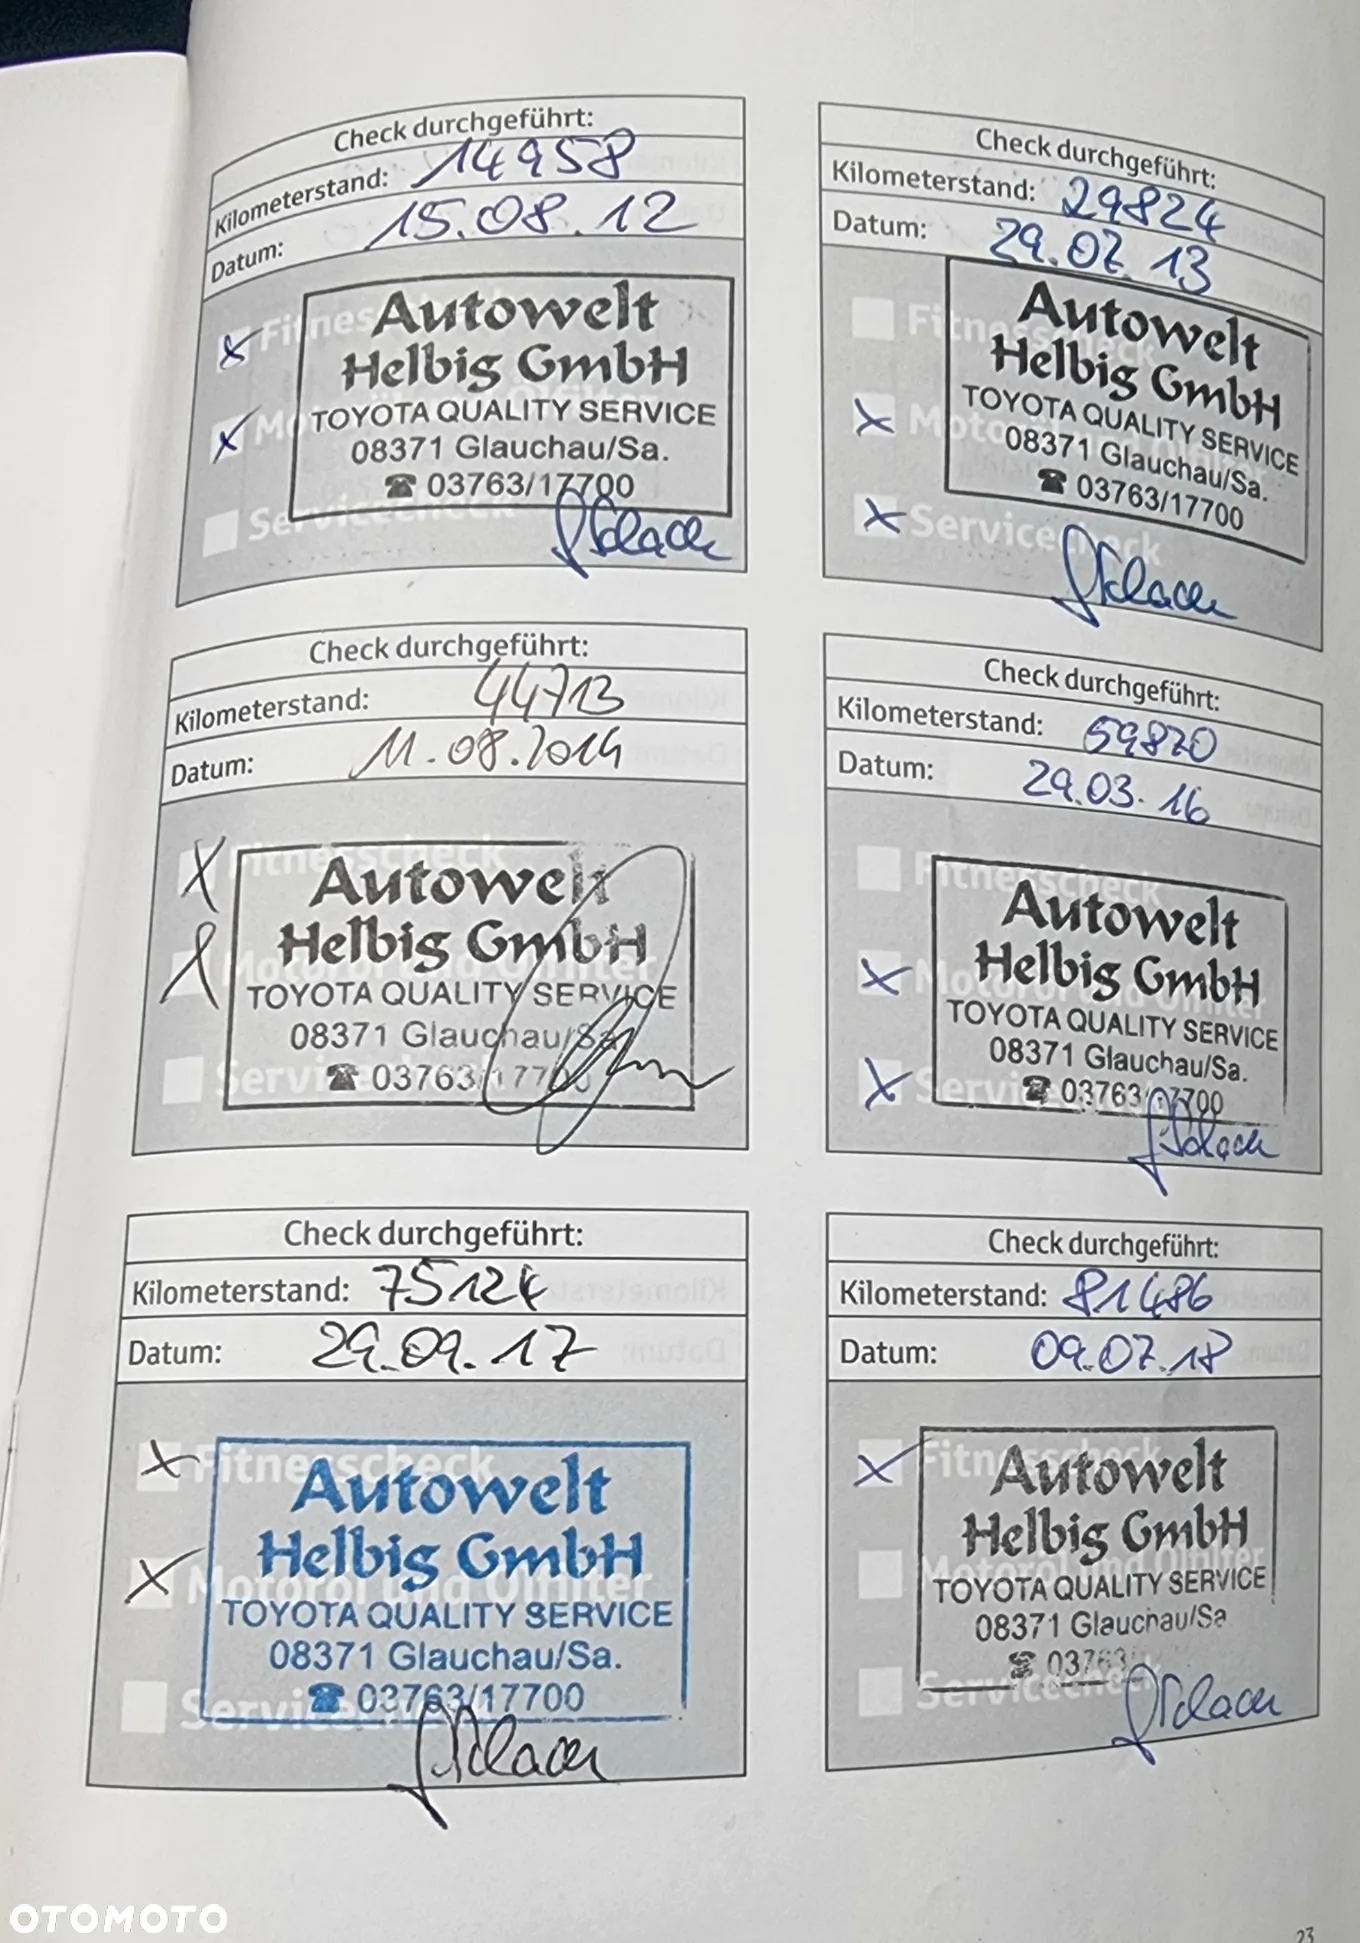 Check durchgeführt:
Kilometerstand: 14958
Datum: 15.08.12
Fitnesscheck
Motoröl und Ölfilter
Servicecheck
Autowelt
Helbig GmbH
TOYOTA QUALITY SERVICE
08371 Glauchau/Sa.
☎ 03763/17700
Check durchgeführt:
Kilometerstand: 29824
Datum: 29.07.13
Fitnesscheck
Motoröl und Ölfilter
Servicecheck
Autowelt
Helbig GmbH
TOYOTA QUALITY SERVICE
08371 Glauchau/Sa.
☎ 03763/17700
Check durchgeführt:
Kilometerstand: 44713
Datum: 11.08.2014
Fitnesscheck
Motoröl und Ölfilter
Servicecheck
Autowelt
Helbig GmbH
TOYOTA QUALITY SERVICE
08371 Glauchau/Sa.
☎ 03763/17700
Check durchgeführt:
Kilometerstand: 59820
Datum: 29.03.16
Fitnesscheck
Motoröl und Ölfilter
Servicecheck
Autowelt
Helbig GmbH
TOYOTA QUALITY SERVICE
08371 Glauchau/Sa.
☎ 03763/17700
Check durchgeführt:
Kilometerstand: 75124
Datum: 29.09.17
Fitnesscheck
Motoröl und Ölfilter
Servicecheck
Autowelt
Helbig GmbH
TOYOTA QUALITY SERVICE
08371 Glauchau/Sa.
☎ 03763/17700
Check durchgeführt:
Kilometerstand: 81486
Datum: 09.07.18
Fitnesscheck
Motoröl und Ölfilter
Servicecheck
Autowelt
Helbig GmbH
TOYOTA QUALITY SERVICE
08371 Glauchau/Sa
☎ 03763
OTOMOTO
23